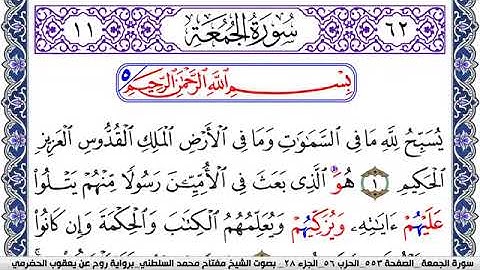 ٦٢ سُورَةُ الجُمُعَةِ ١١
بِسْمِ اللَّهِ الرَّحْمَٰنِ الرَّحِيمِ ٥
يُسَبِّحُ لِلَّهِ مَا فِي السَّمَٰوَٰتِ وَمَا فِي الْأَرْضِ الْمَلِكِ الْقُدُّوسِ الْعَزِيزِ
الْحَكِيمِ ١ هُوَ الَّذِي بَعَثَ فِي الْأُمِّيِّـۧنَ رَسُولًا مِنْهُمْ يَتْلُوا
عَلَيْهُمْ ءَايَٰتِهِۦ وَيُزَكِّيهُمْ وَيُعَلِّمُهُمُ الْكِتَٰبَ وَالْحِكْمَةَ وَإِن كَانُوا
سورة الجمعة _الصفحة ٥٥٣_الحزب ٥٦_الجزء ٢٨ _ بصوت الشيخ مفتاح محمد السلطني_برواية روح عن يعقوب الحضرمي